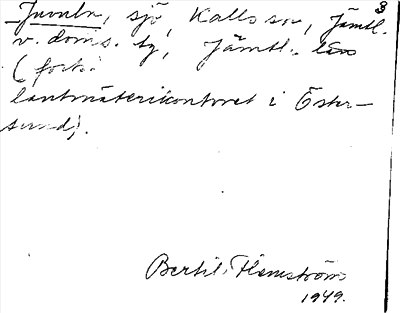 3
Juveln, sjö, Kalls sn, Jämtl.
v. doms. tg, Jämtl. län
(fort.
lantmäterikontoret i Öster-
sund).
Bertil Flemström
1949.